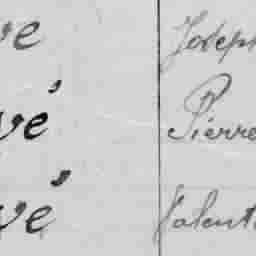 ve Joseph
vé Pierre
vé Valent